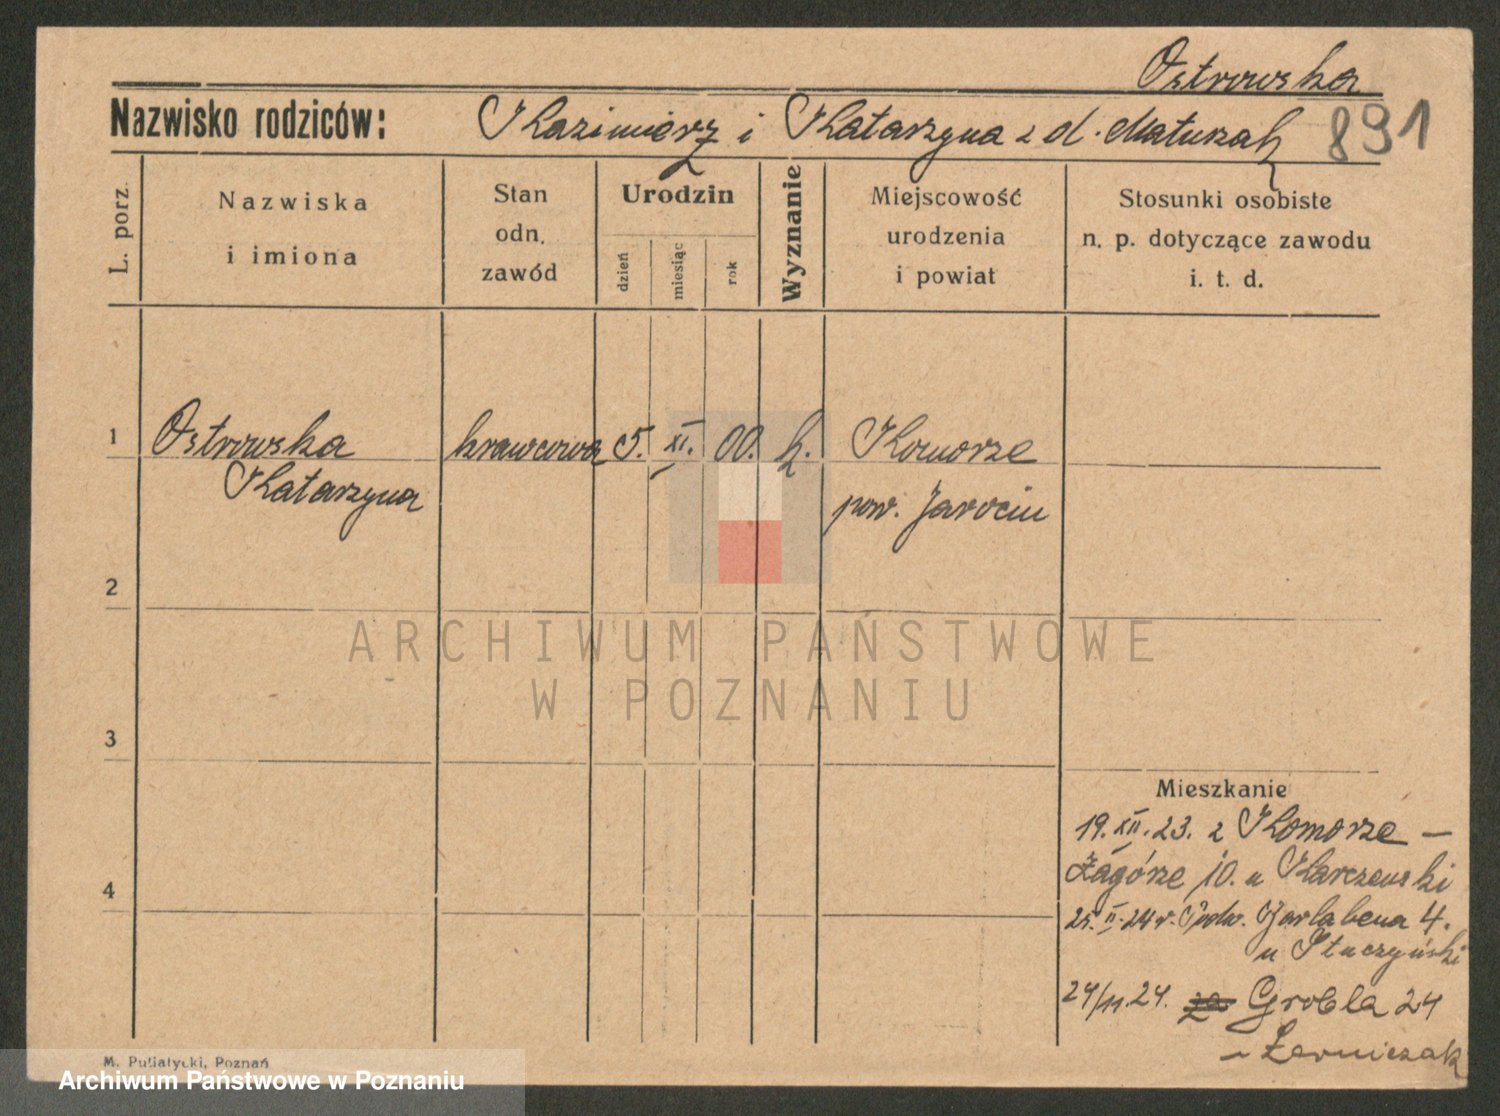 Ostrowska
Nazwisko rodziców: Kazimierz i Katarzyna z d. Maturzak 891
L. porz.
Nazwiska
i imiona
Stan
odn.
zawód
Urodzin
dzień
miesiąc
rok
Wyznanie
Miejscowość
urodzenia
i powiat
Stosunki osobiste
n. p. dotyczące zawodu
i. t. d.
1 Ostrowska krawcowa 5. XI. 00. k. Komorze
Katarzyna pow. Jarocin
2
ARCHIWUM PAŃSTWOWE
W POZNANIU
3
Mieszkanie
19. XII. 23. z Komorze —
Zagórze 10. u Karczewski
4
25. II. 24 r. 4.
u
24/11. 24. Grobla 24
M. Pujiatycki, Poznań
Archiwum Państwowe w Poznaniu